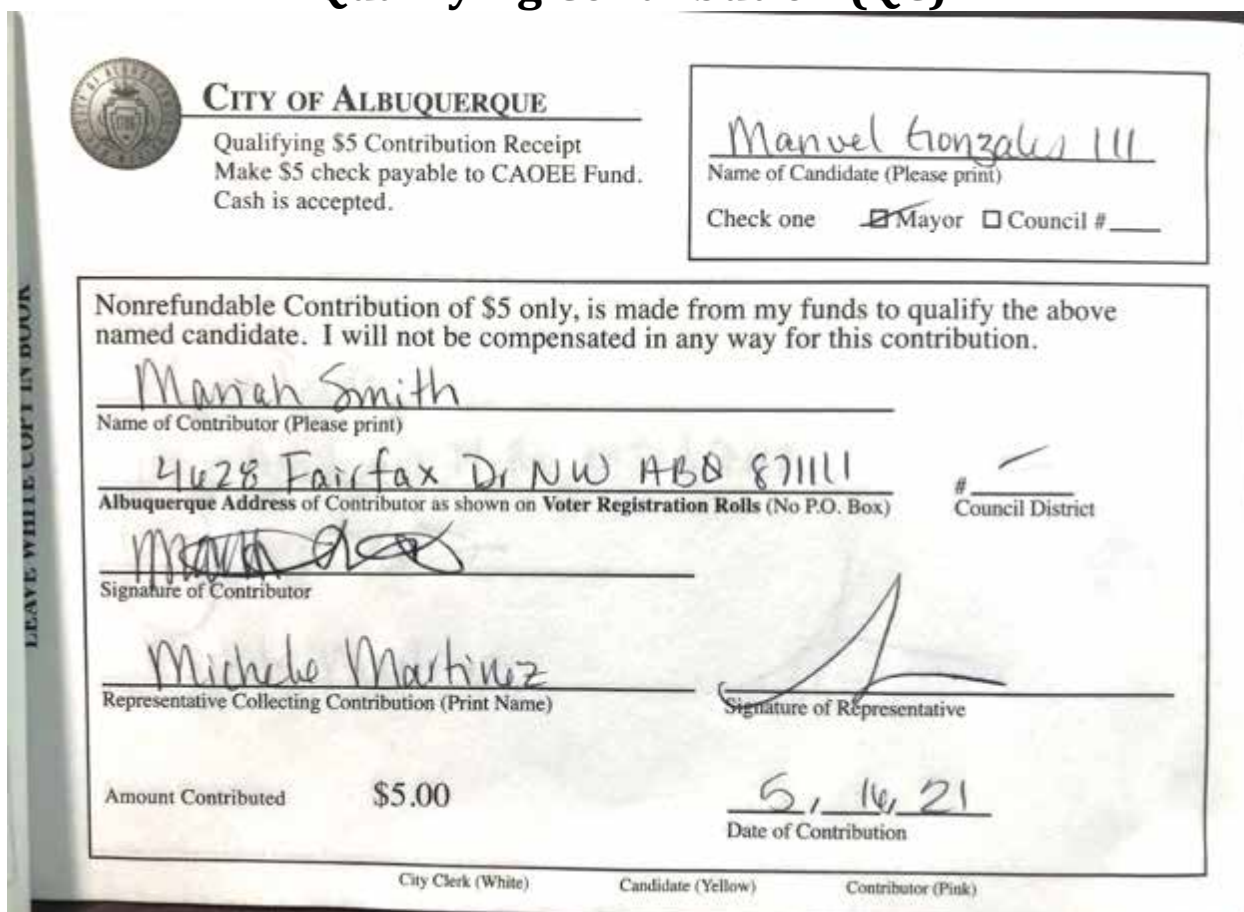 CITY OF ALBUQUERQUE
Qualifying $5 Contribution Receipt
Make $5 check payable to CAOEE Fund.
Cash is accepted.
Manuel Gonzales III
Name of Candidate (Please print)
Check one Mayor Council #
LEAVE WHITE COPY IN BOOK
Nonrefundable Contribution of $5 only, is made from my funds to qualify the above
named candidate. I will not be compensated in any way for this contribution.
Mariah Smith
Name of Contributor (Please print)
4628 Fairfax Dr NW ABQ 871111
Albuquerque Address of Contributor as shown on Voter Registration Rolls (No P.O. Box)
#
Council District
Signature of Contributor
Michele Martinez
Representative Collecting Contribution (Print Name)
Signature of Representative
Amount Contributed $5.00
5, 16, 21
Date of Contribution
City Clerk (White) Candidate (Yellow) Contributor (Pink)